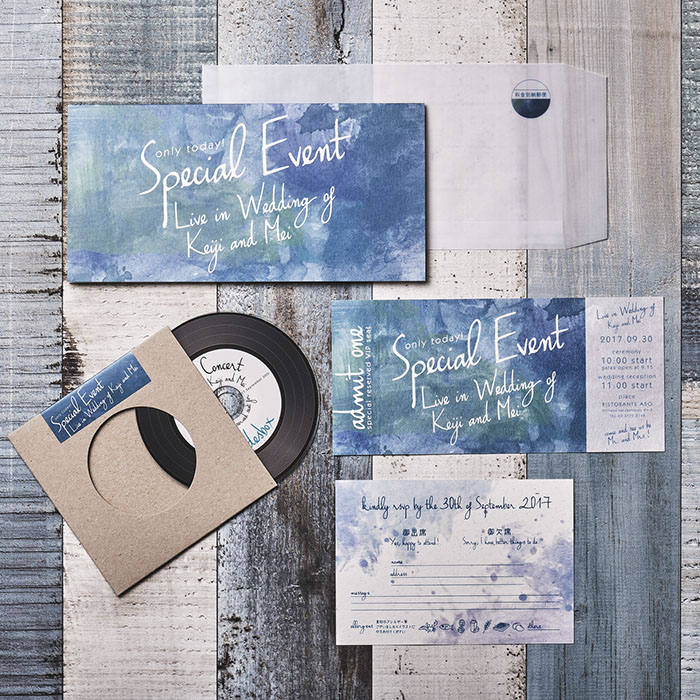 料金別納郵便
only today!
Special Event
Live in Wedding of
Keiji and Mei
admit one
special reserved VIP seat
only today!
Special Event
Live in Wedding of
Keiji and Mei
Live in Wedding of
Keiji and Mei
2017.09.30
ceremony
10:00 start
wedding reception
11:00 start
place
RISTORANTE ASO
come and see us be
Mr. and Mrs.!
only today!
Special Event
Live in Wedding of Keiji and Mei
Concert
Keiji and Mei
kindly rsvp by the 30th of September 2017
御出席
御欠席
Yes, happy to attend!
Sorry, I have better things to do
name
address
message
allergies